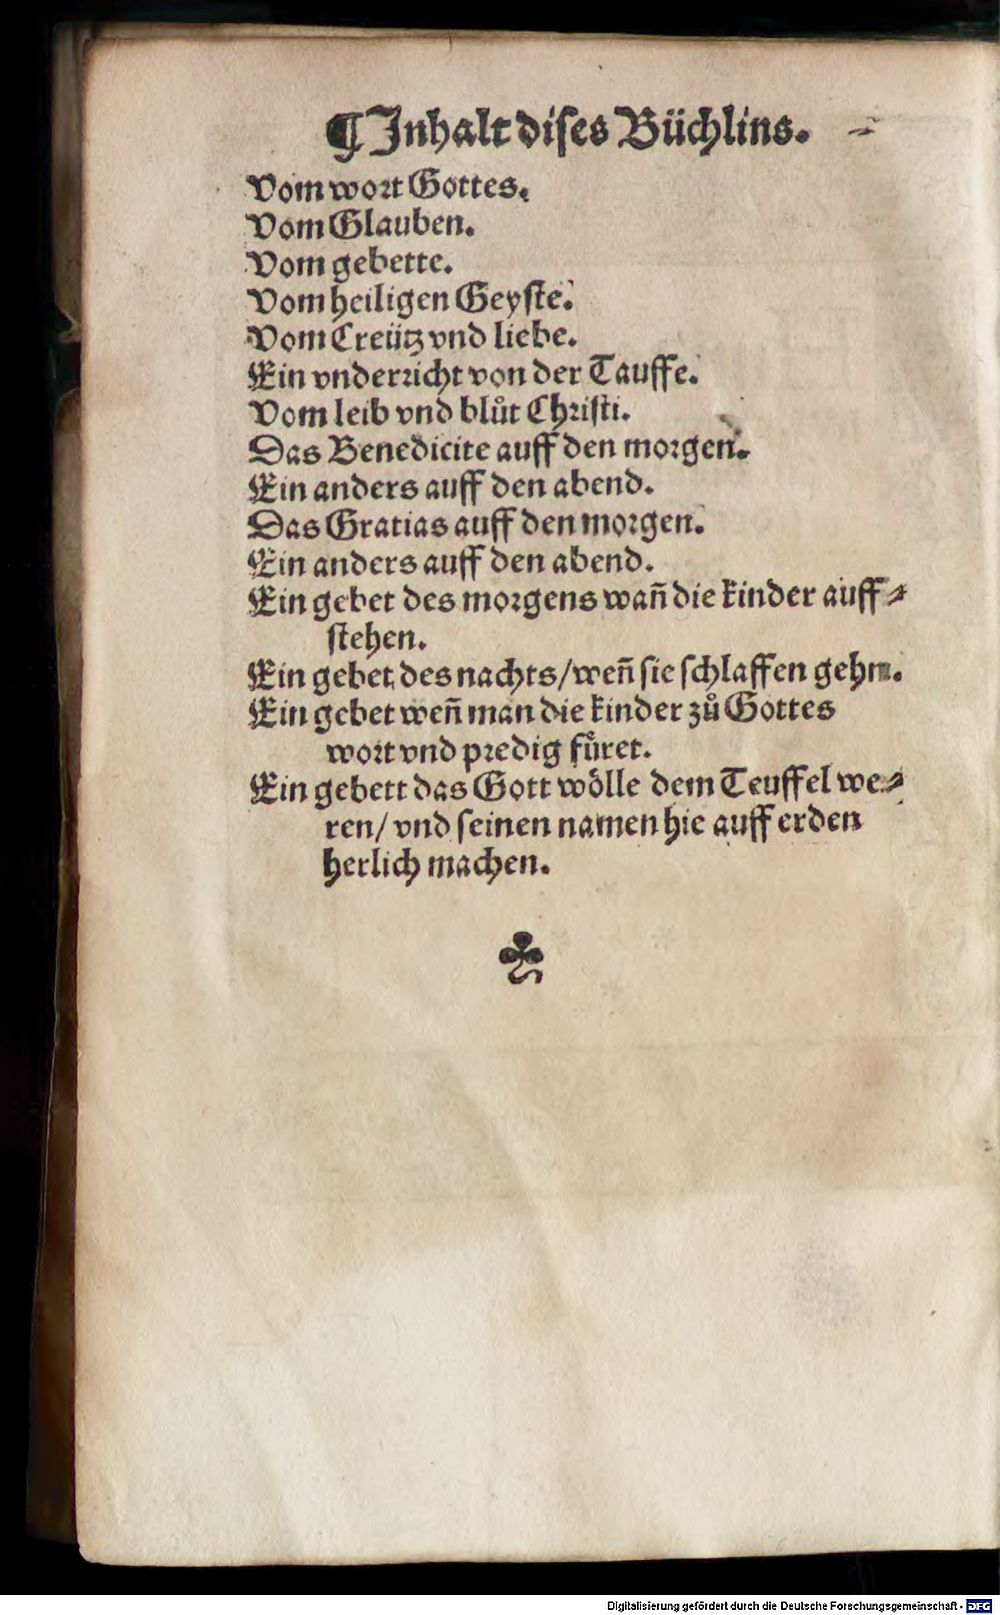 ¶ Inhalt diſes Büchlins.
Vom wort Gottes.
Vom Glauben.
Vom gebette.
Vom heiligen Geyſte.
Vom Creütz vnd liebe.
Ein vnderricht von der Tauffe.
Vom leib vnd blůt Chriſti.
Das Benedicite auff den morgen.
Ein anders auff den abend.
Das Gratias auff den morgen.
Ein anders auff den abend.
Ein gebet des morgens wañ die kinder auff⸗
ſtehen.
Ein gebet des nachts/weñ ſie ſchlaffen gehn.
Ein gebet weñ man die kinder zů Gottes
wort vnd predig fůret.
Ein gebett das Gott wölle dem Teuffel we⸗
ren/ vnd ſeinen namen hie auff erden
herlich machen.
Digitalisierung gefördert durch die Deutsche Forschungsgemeinschaft - DFG